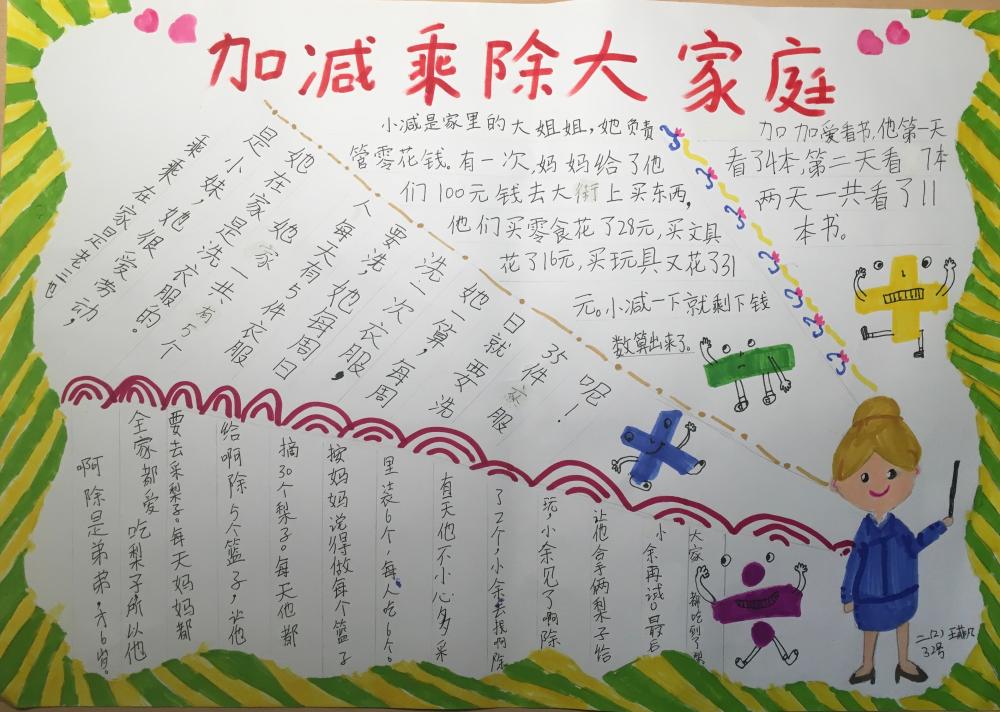 加减乘除大家庭
小减是家里的大姐姐,她负责
管零花钱。有一次,妈妈给了他
们100元钱去大街上买东西,
他们买零食花了28元,买文具
花了16元,买玩具又花了31
元。小减一下就剩下钱
数算出来了。
加加爱看书,他第一天
看了4本,第二天看7本
两天一共看了11
本书。
乘乘在家是老三也
是小妹,她很爱劳动,
她在家是洗衣服的。
她家一共有5个
人每天有5件衣服
要洗,她每周日
洗一次衣服,每周
她一算,
日就要洗
35件衣服
呢!
啊除是弟弟,才6岁。
全家都爱吃梨子所以他
要去采梨子。每天妈妈都
给啊除5个篮子,让他
摘30个梨子。每天他都
按妈妈说得做每个篮子
里装6个,每人吃6个。
有天他不小心多采
了2个,小余去找啊除
玩,小余见了啊除
让他合手俩梨子给
小余再试口最后
大家都吃到了梨
二(2)王
32号